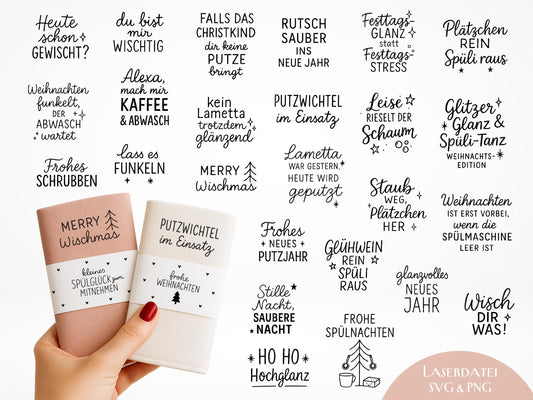 Heute
schon
GEWISCHT?
du bist
mir
WISCHTIG
FALLS DAS
CHRISTKIND
dir keine
PUTZE
bringt
RUTSCH
SAUBER
INS
NEUE JAHR
Festtags-
GLANZ
statt
Festtags-
STRESS
Plätzchen
REIN
Spüli raus
Weihnachten
funkelt,
DER
ABWASCH
wartet
Alexa,
mach mir
KAFFEE
& ABWASCH
kein
Lametta
trotzdem
glänzend
PUTZWICHTEL
im Einsatz
Leise
RIESELT DER
Schaum
Glitzer
Glanz &
Spüli-Tanz
WEIHNACHTS-
EDITION
Frohes
SCHRUBBEN
lass es
FUNKELN
MERRY
Wischmas
Lametta
WAR GESTERN,
HEUTE WIRD
geputzt
Staub
WEG,
Plätzchen
HER
Weihnachten
IST ERST VORBEI,
wenn die
SPÜLMASCHINE
LEER IST
MERRY
Wischmas
kleines
SPÜLGLÜCK zum
MITNEHMEN
PUTZWICHTEL
im Einsatz
frohe
WEIHNACHTEN
Frohes
NEUES
PUTZJAHR
GLÜHWEIN
REIN
SPÜLI
RAUS
glanzvolles
NEUES
JAHR
Wisch
DIR
WAS!
Stille
Nacht,
SAUBERE
NACHT
FROHE
SPÜLNACHTEN
HO HO
Hochglanz
LASERDATEI
SVG & PNG